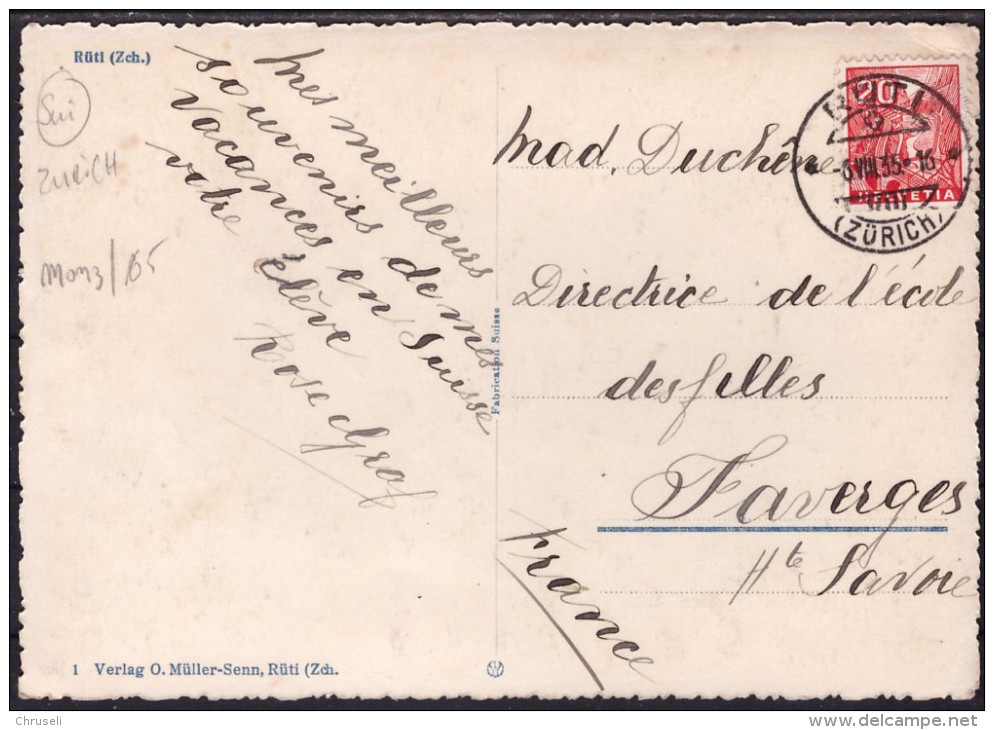 Rüti (Zch.)
Sui
ZURICH
mes meilleurs
souvenirs de mes
Vacances en Suisse
votre élève
Rose Graf
Fabrication Suisse
1 Verlag O. Müller-Senn, Rüti (Zch.
20
HELVETIA
RÜTI
-6.VIII.35.-16
(ZÜRICH)
Mad. Duchêne
Directrice de l'école
des filles
Faverges
Hte Savoie
France
Chruseli
www.delcampe.net